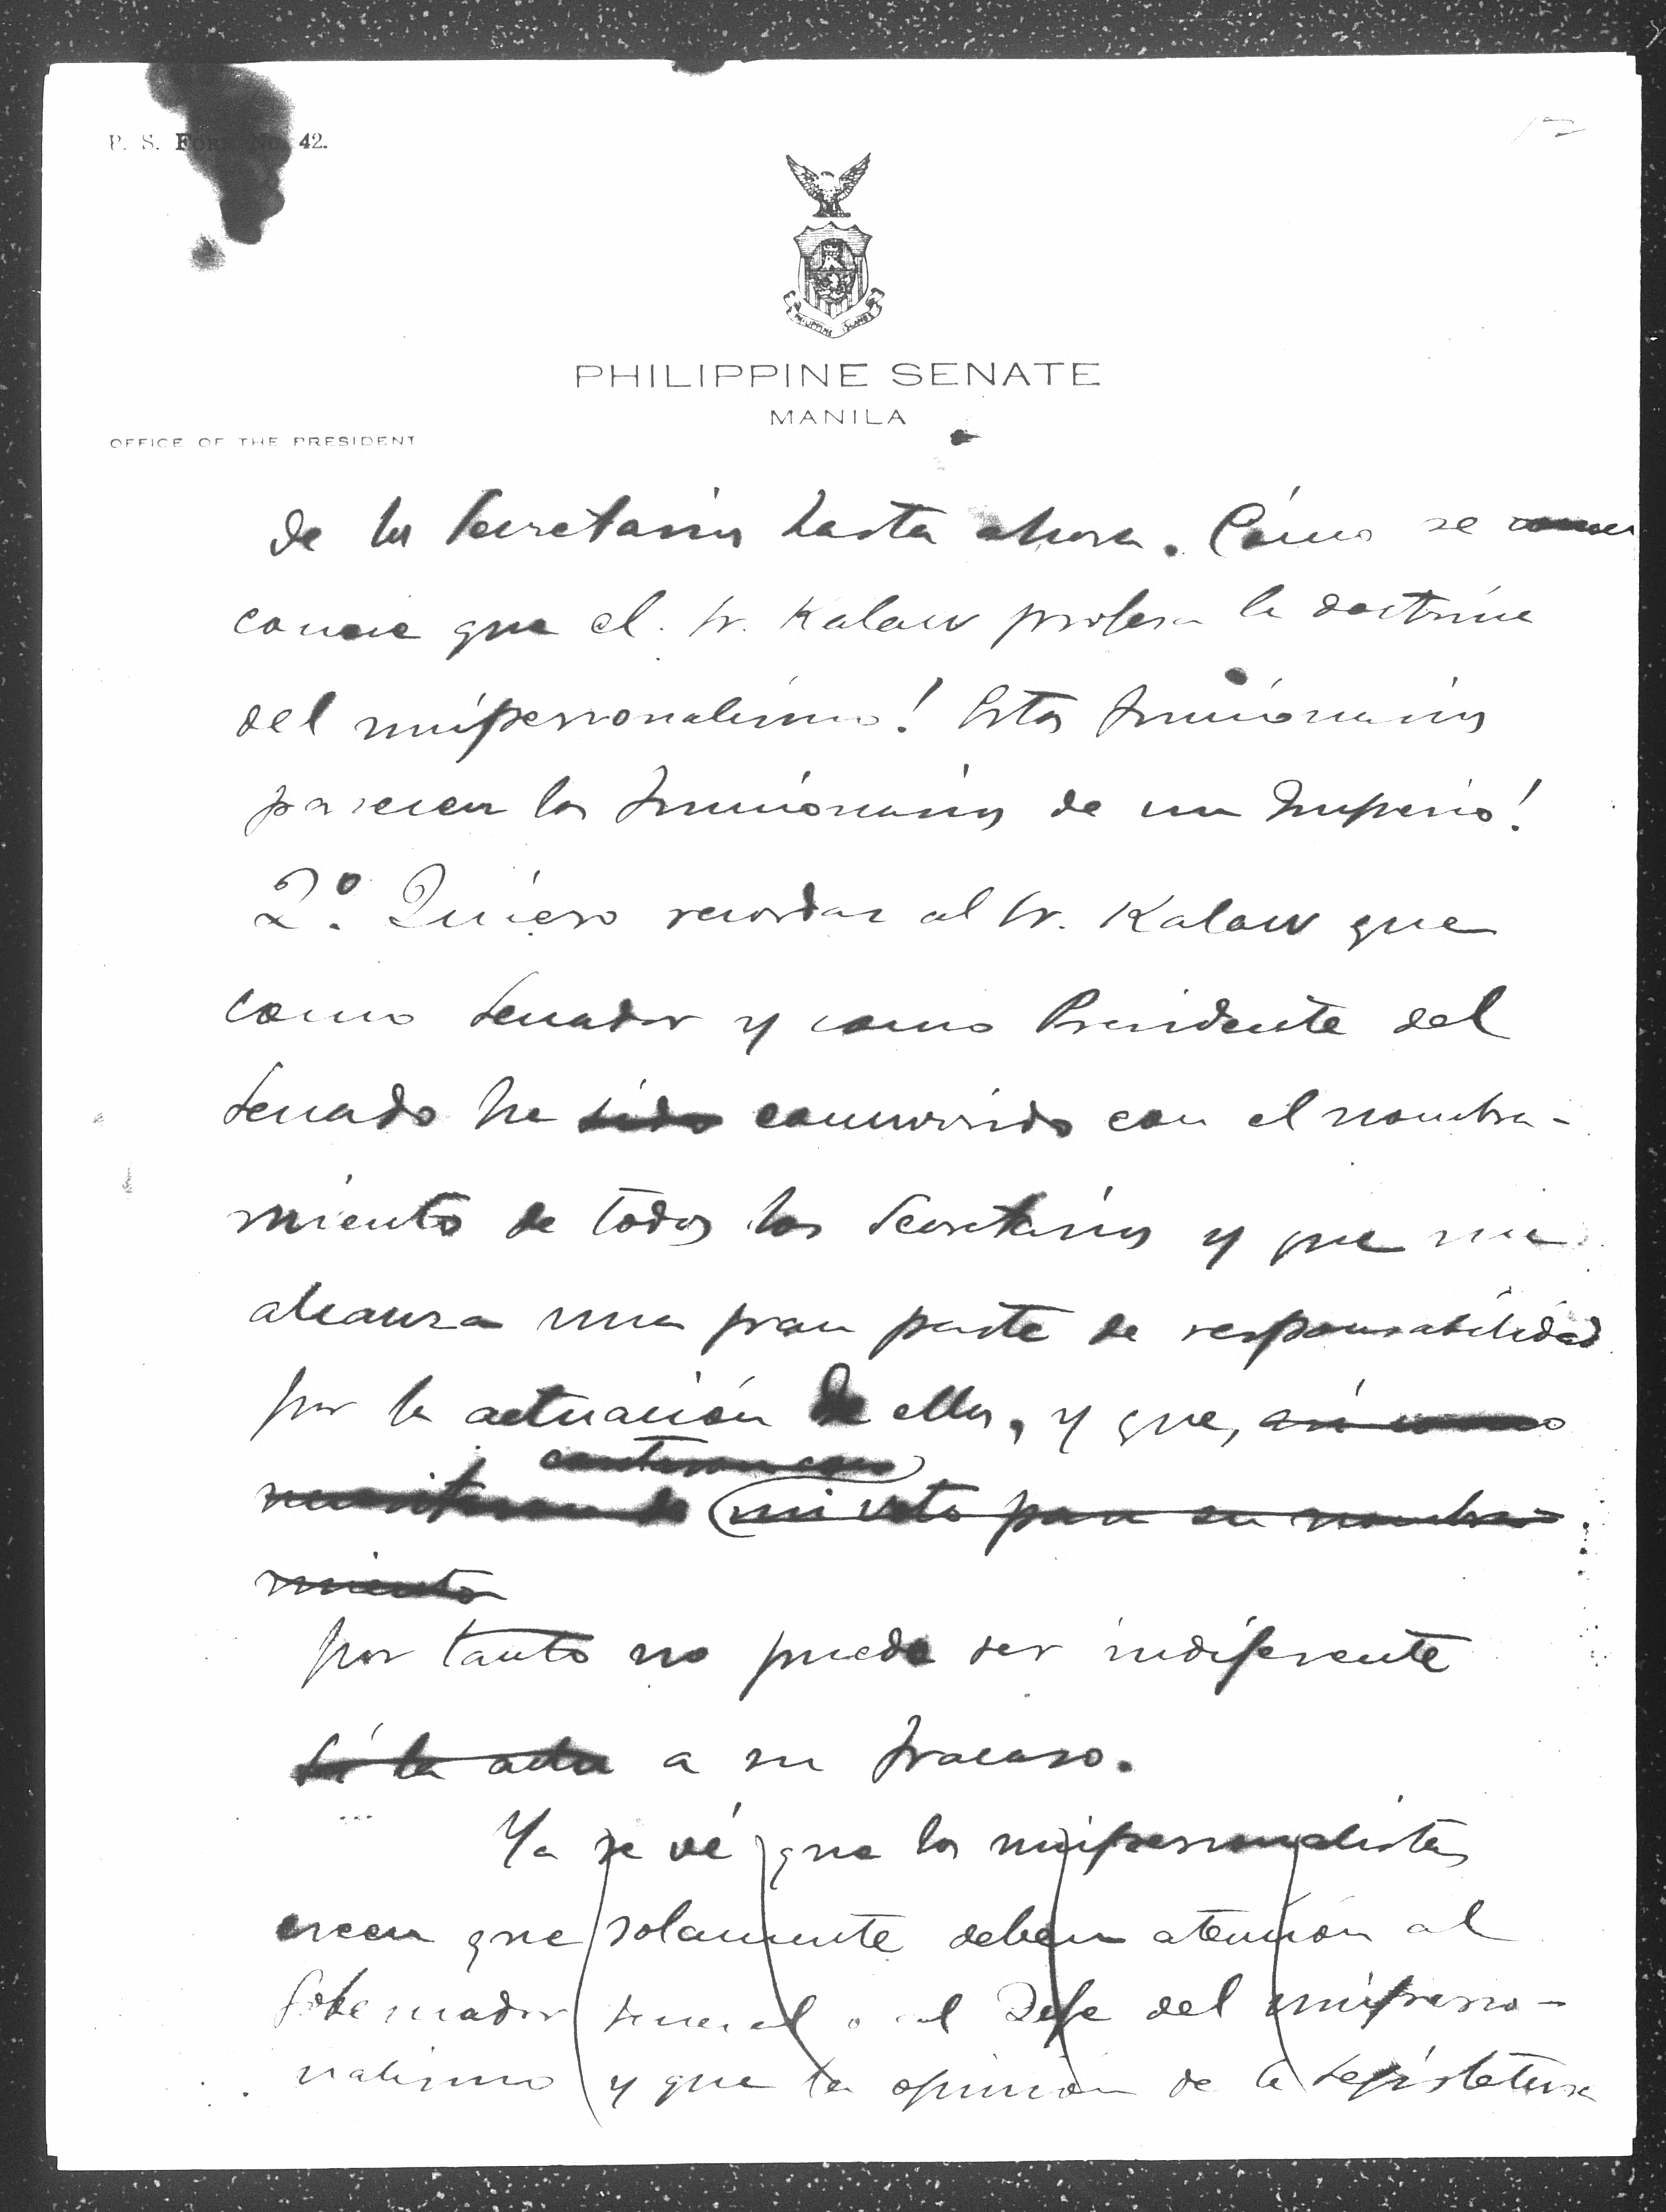 P. S. FORM No. 42.
PHILIPPINE ISLANDS
PHILIPPINE SENATE
MANILA
OFFICE OF THE PRESIDENT
de los Secretarios hasta ahora. Cómo se conoce
conoce que el Sr. Kalaw profesa la doctrina
del unipersonalismo! Estos funcionarios
parecen los funcionarios de un Imperio!
2.º Quiero recordar al Sr. Kalaw que
como Senador y como Presidente del
Senado he sido convenido con el nombra-
miento de todos los Secretarios y que me
alcanza una gran parte de responsabilidad
por la actuación de ellos, y que, así como
mi voto para su nombra-
miento
por tanto no puedo ser indiferente
si la actu a su fracaso.
Ya se vé que los unipersonalistas
creen que solamente deben atención al
Gobernador General o al Jefe del uniperso-
nalismo y que la opinión de la Legislatura